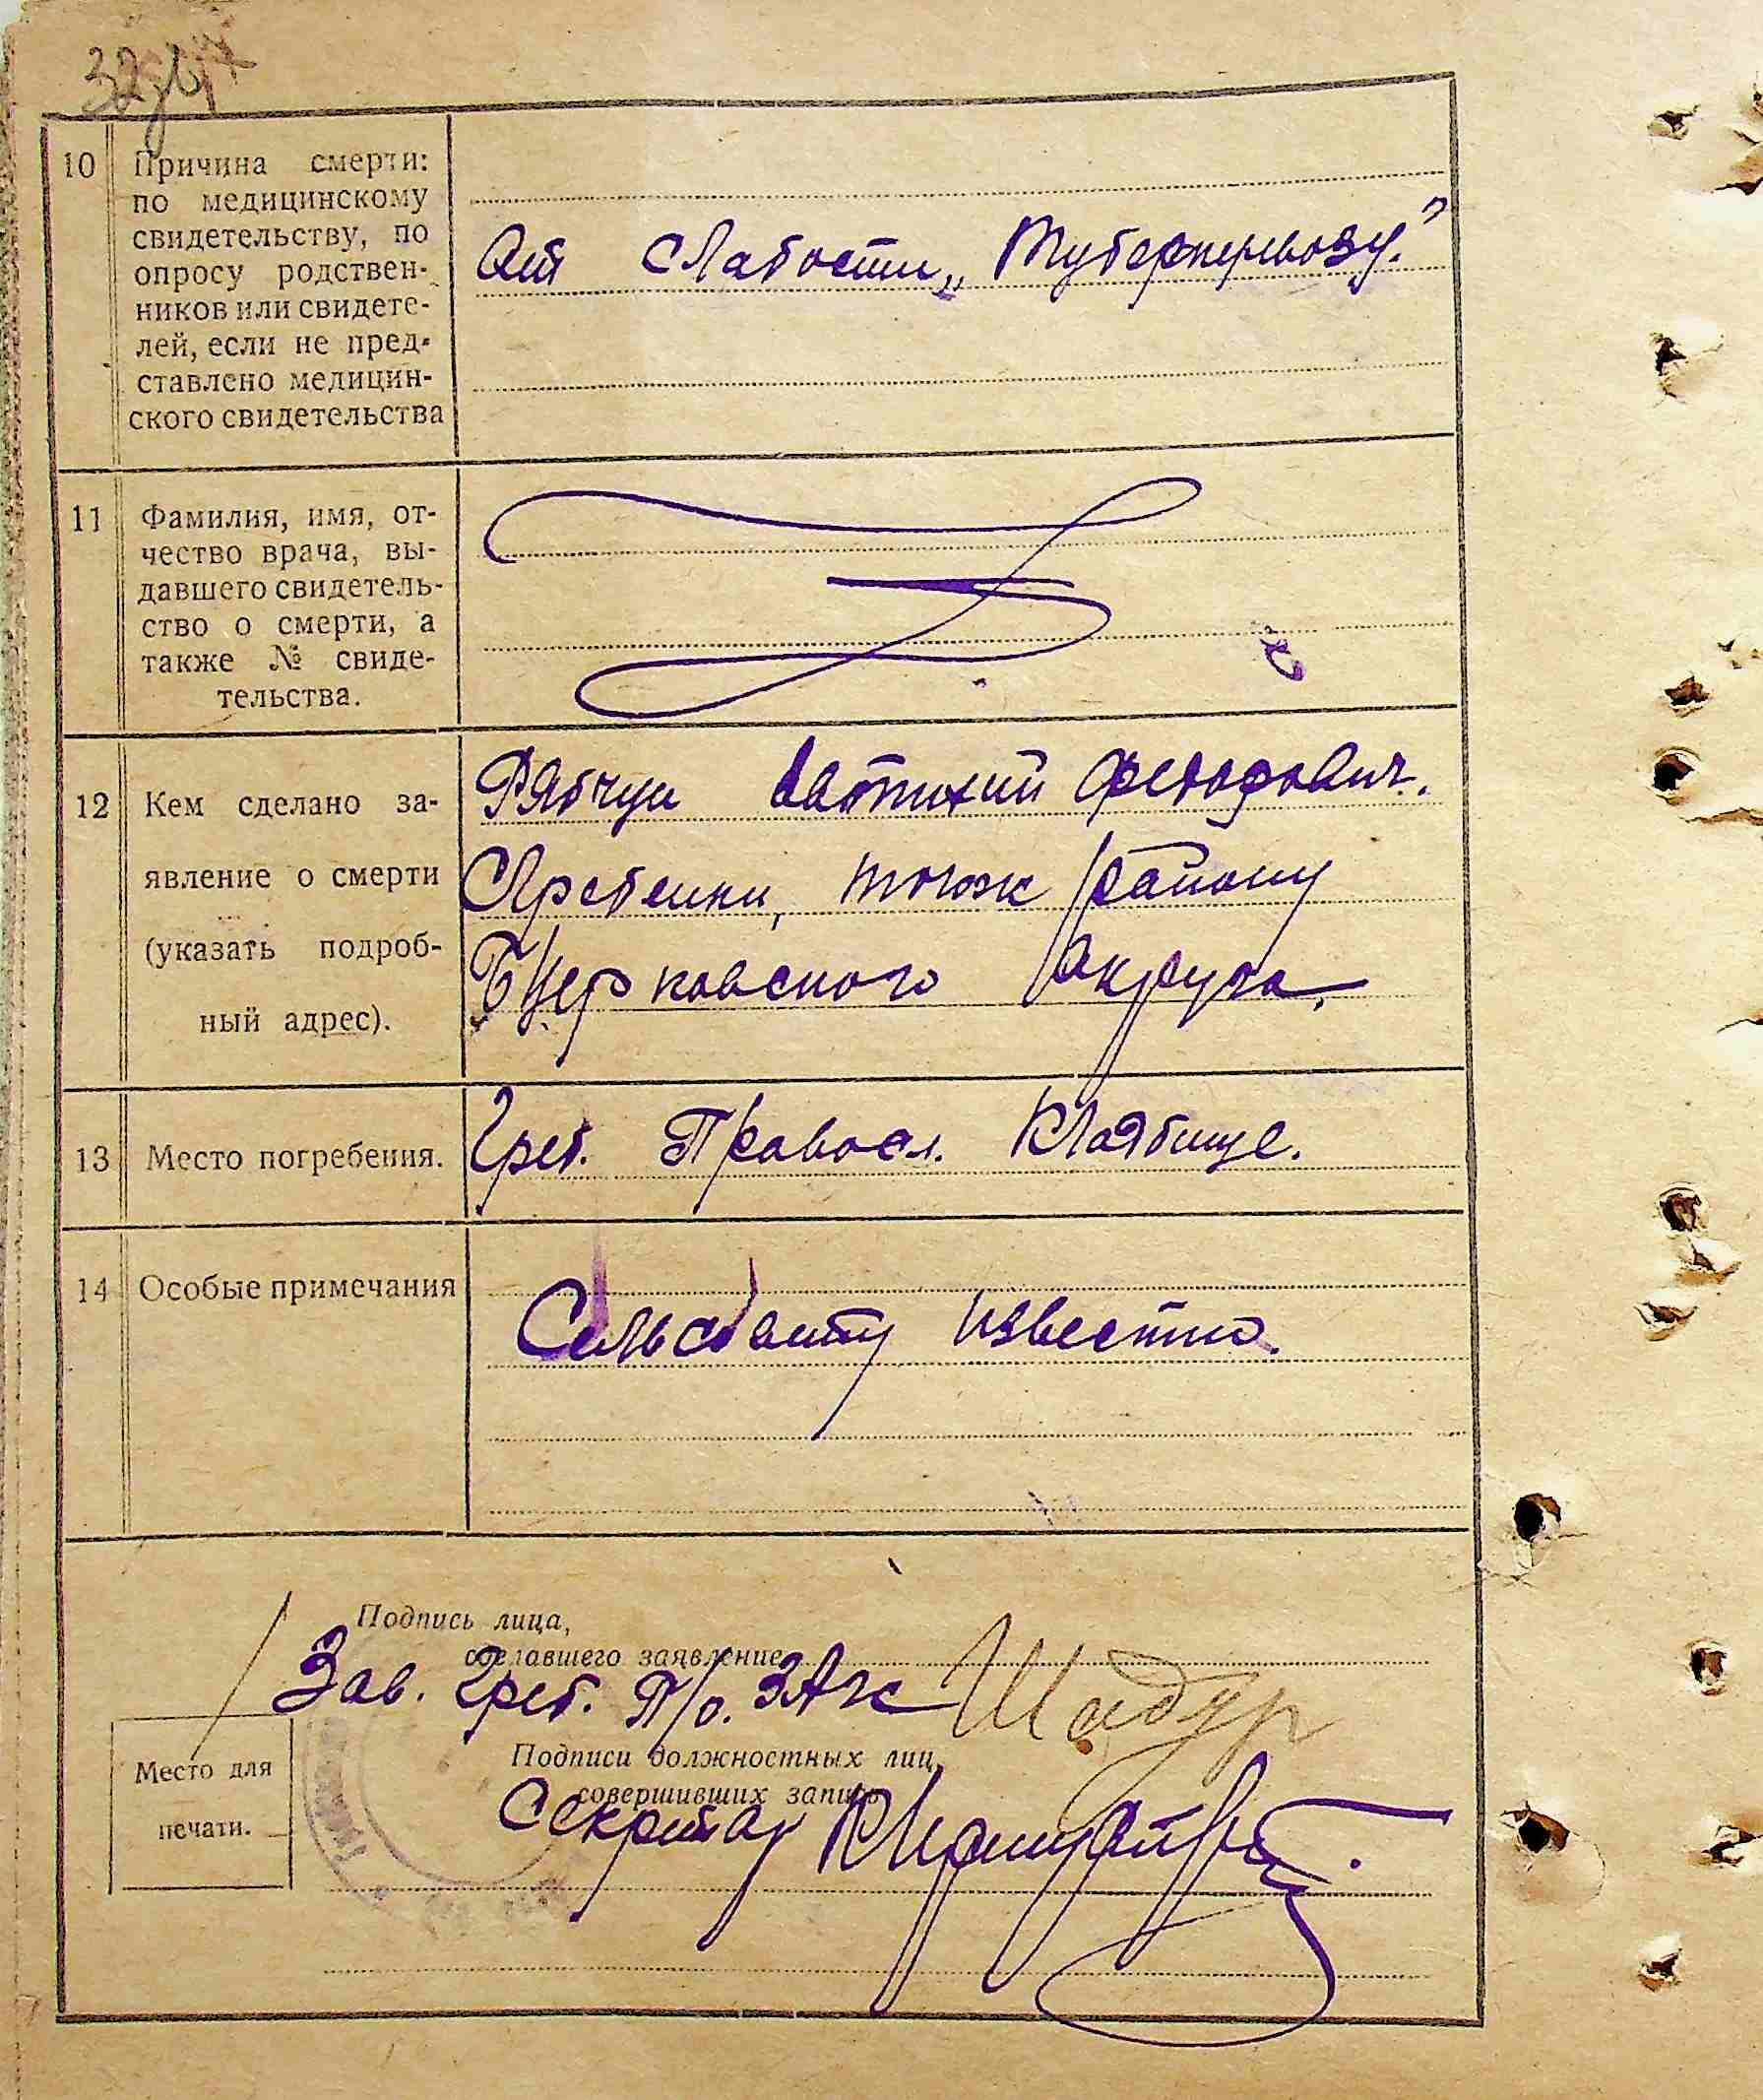 32
10 Причина смерти:
по медицинскому
свидетельству, по
опросу родствен-
ников или свидете-
лей, если не пред-
ставлено медицин-
ского свидетельства
От слабости „Туберкульозу."
11 Фамилия, имя, от-
чество врача, вы-
давшего свидетель-
ство о смерти, а
также № свиде-
тельства.
12 Кем сделано за-
явление о смерти
(указать подроб-
ный адрес).
Федорович.
С/Гребенки, тогож району
Б/Церковского округа.
13 Место погребения.
Греб. Правосл. Кладбище.
14 Особые примечания
известно.
Подпись лица,
сделавшего заявление
Зав. Греб. П/о. ЗАГС
Место для
печати.
Подписи должностных лиц,
совершивших запись
Секретар